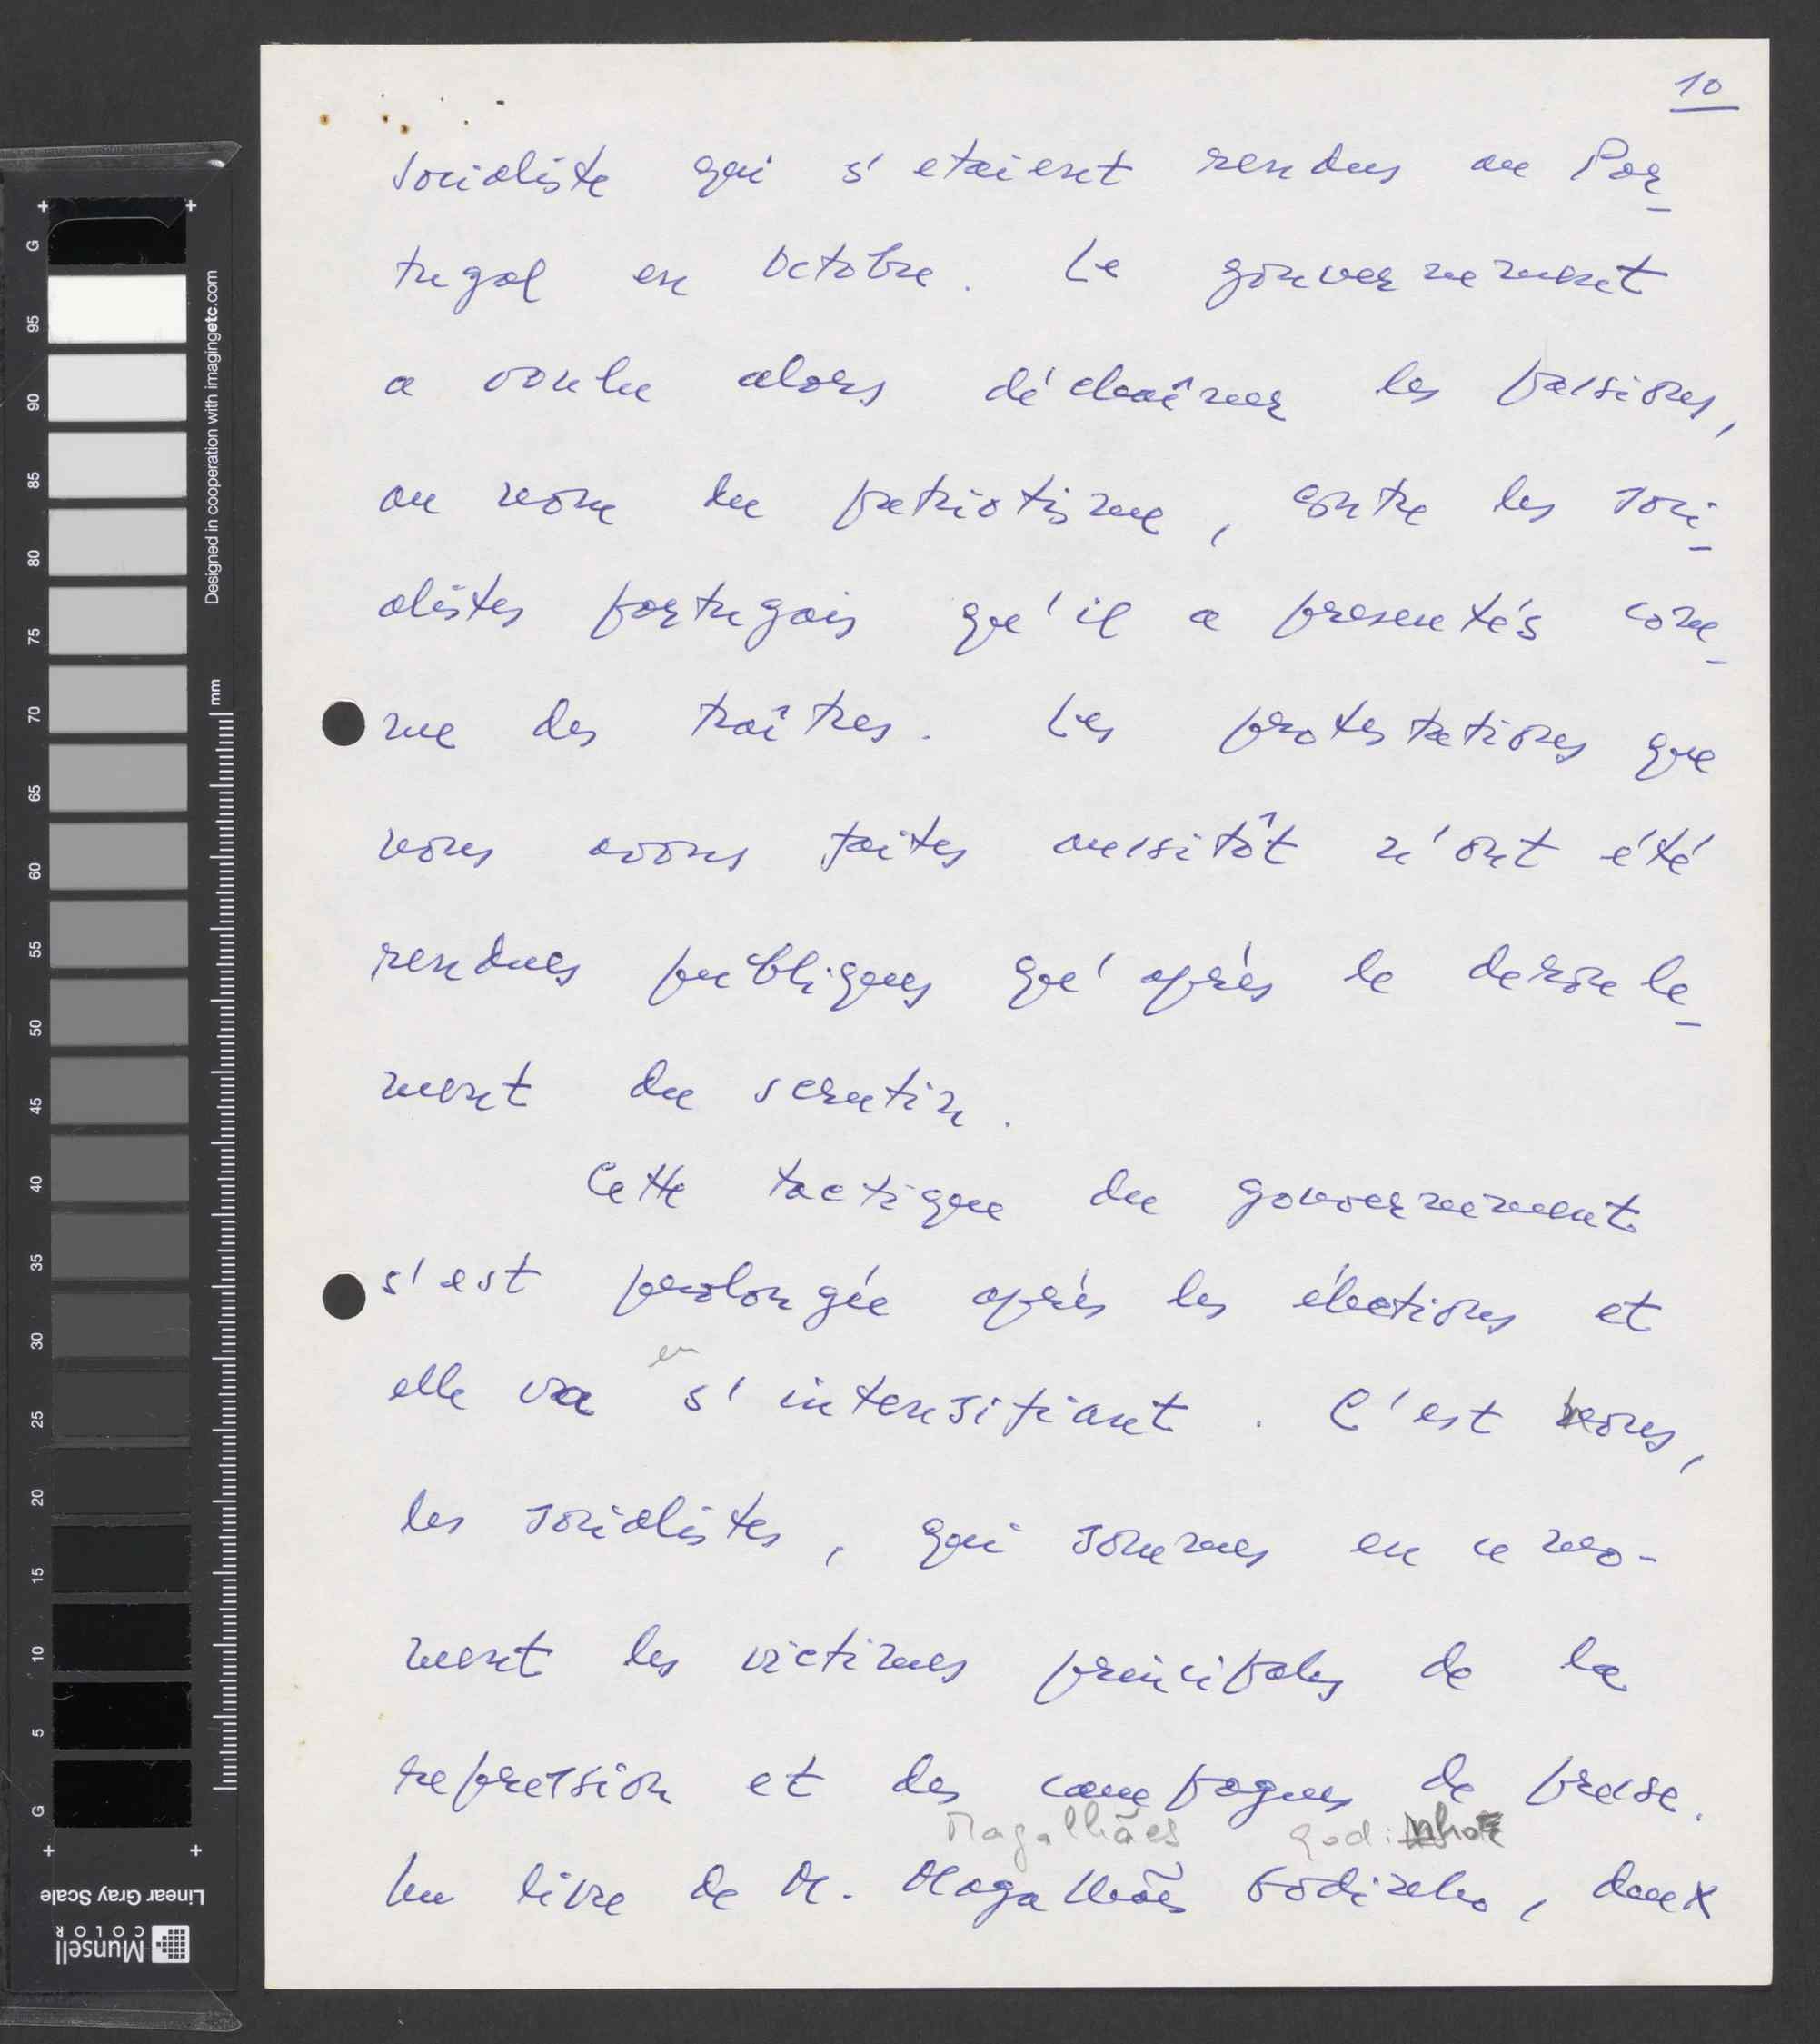 10
socialiste qui s'etaient rendus au Por-
tugal en Octobre. Le gouvernement
a voulu alors déchaîner les passions,
au nom du patriotisme, contre les soci-
alistes portugais qu'il a presentés com-
me des traîtres. Les protestations que
nous avons faites aussitôt n'ont été
rendues publiques qu'après le deroule-
ment du scrutin.
Cette tactique du gouvernement
s'est prolongée après les élections et
en
elle va s'intensifiant. C'est nous,
les socialistes, qui sommes en ce mo-
ment les victimes principales de la
repression et des campagnes de presse.
Magalhães Godinho
Un livre de M. Magalhães Godinho, deux
Designed in cooperation with imagingetc.com
mm
G
95
90
85
80
75
70
65
60
55
50
45
40
35
30
25
20
15
10
5
G
Linear Gray Scale
Munsell
COLOR